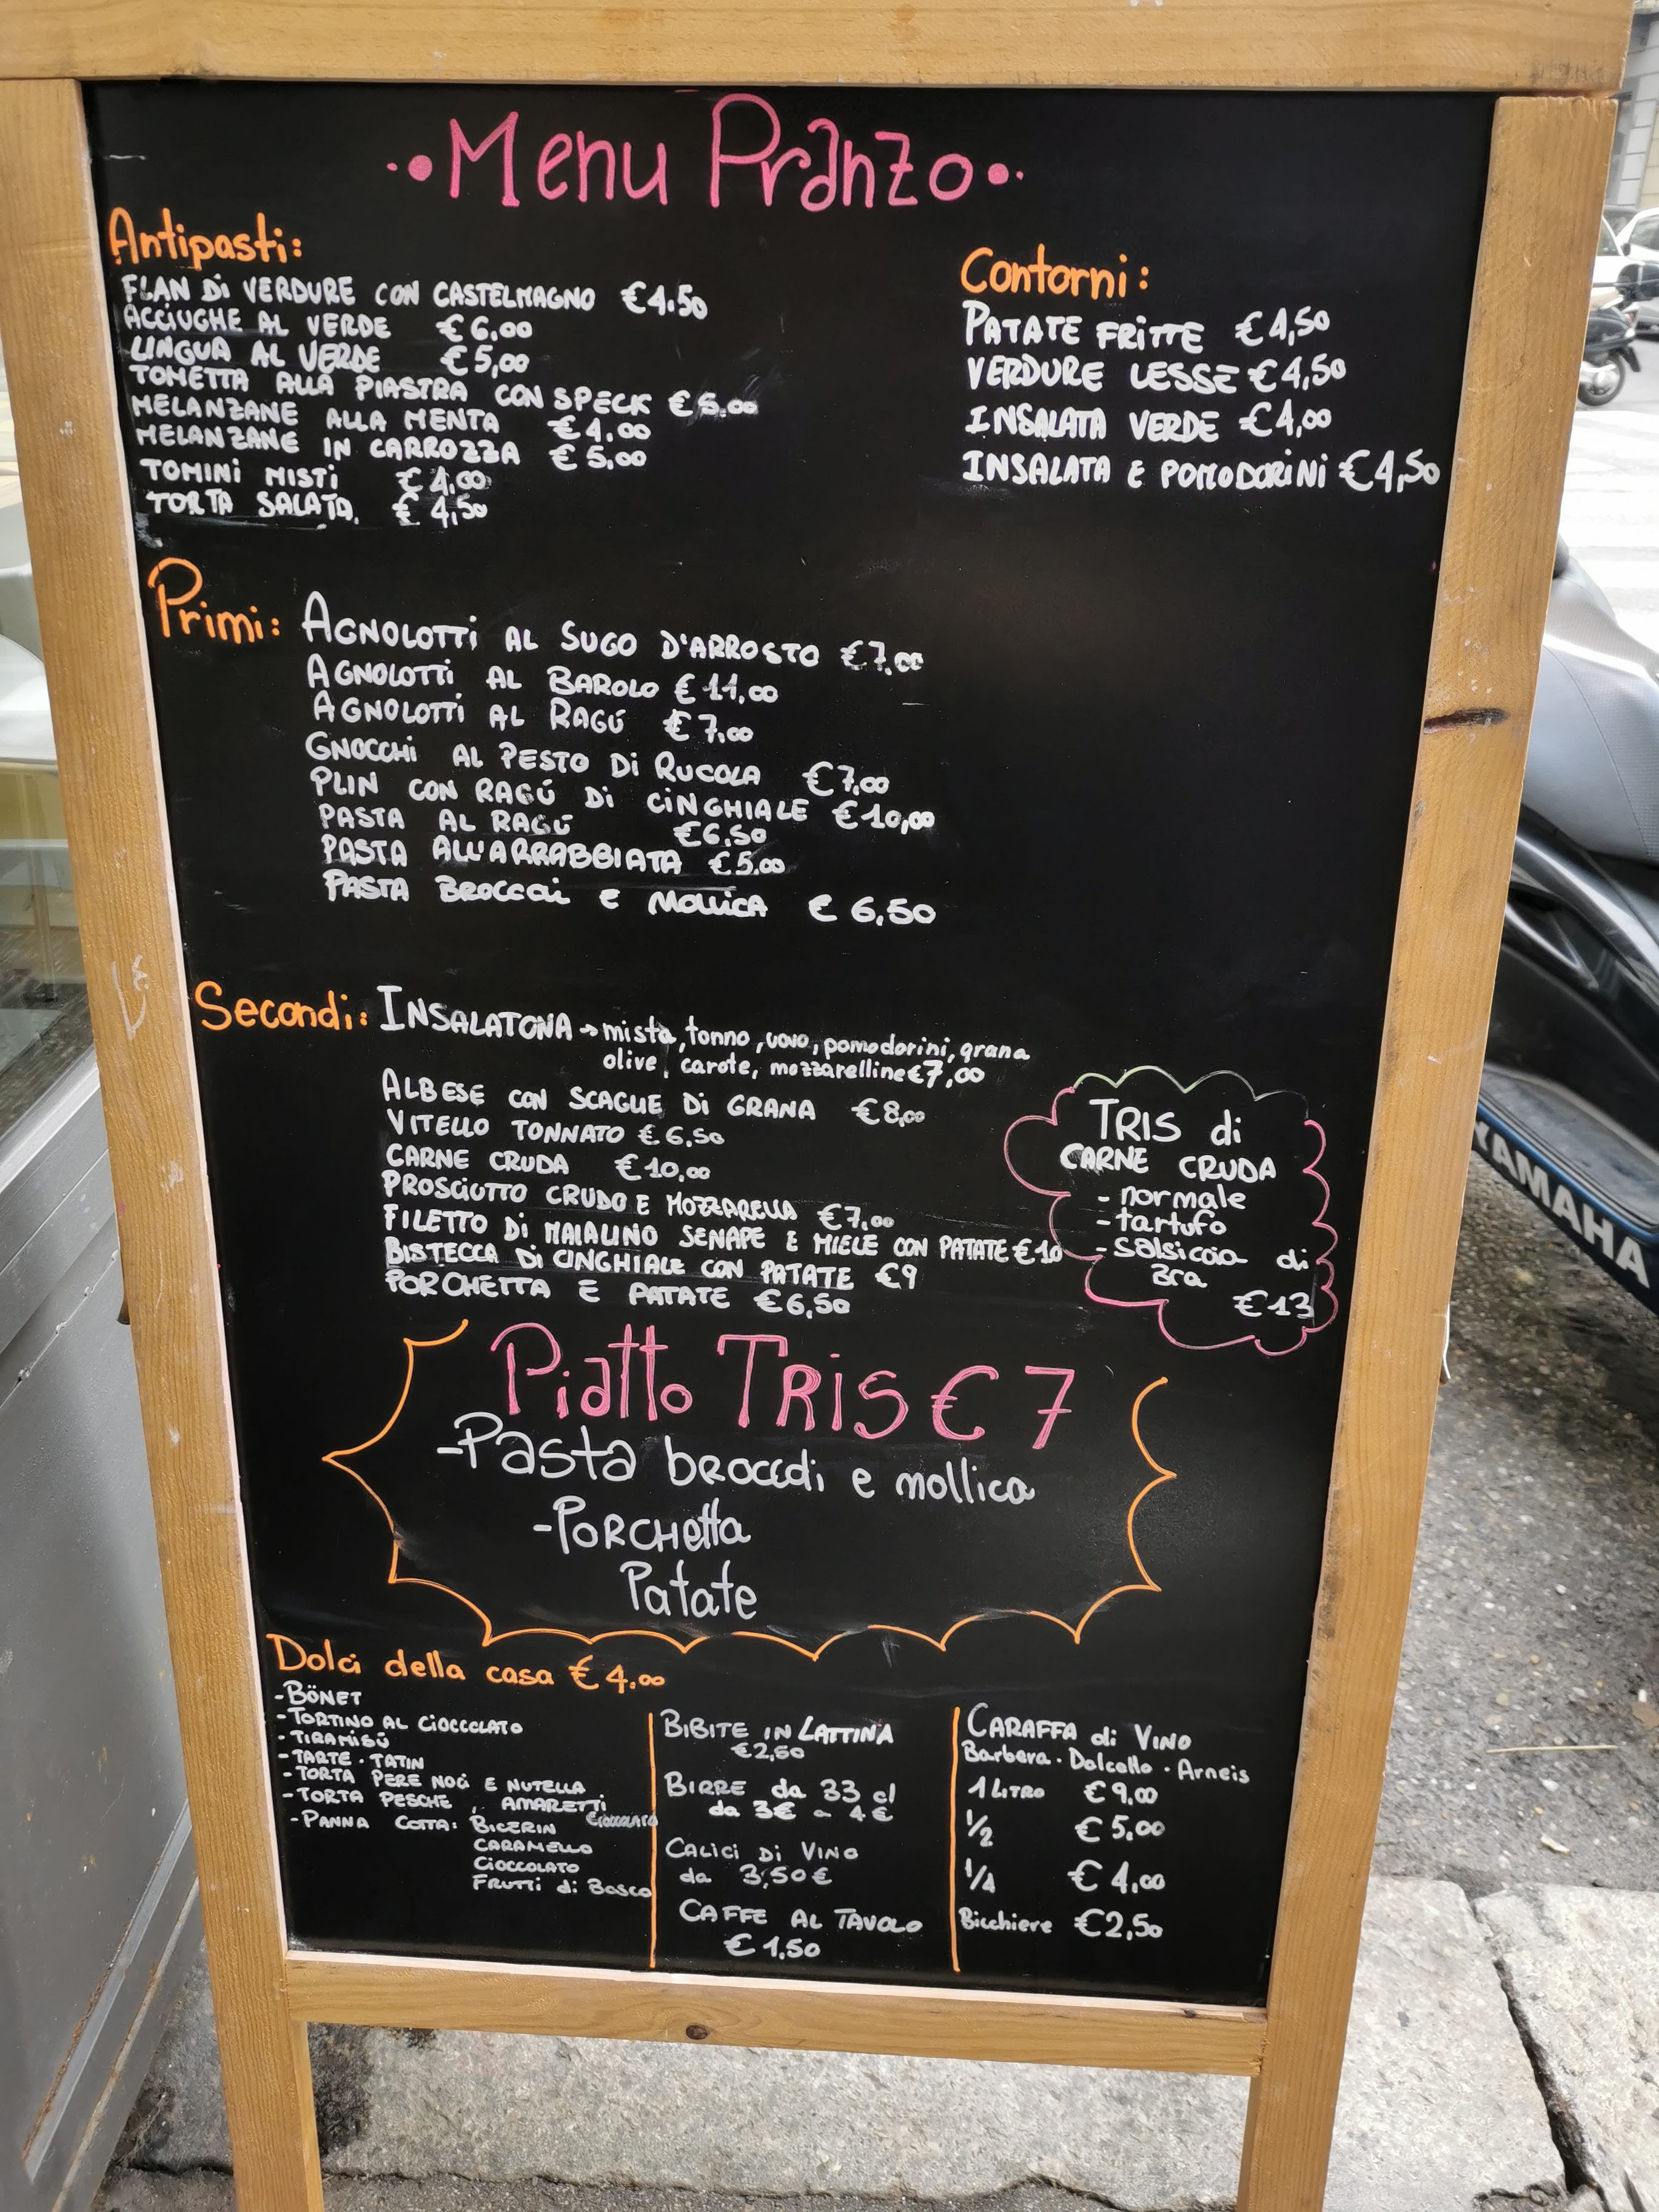 Menu Pranzo
Antipasti:
FLAN Di VERDURE CON CASTELMAGNO €4.50
ACCIUGHE AL VERDE €6,00
LINGUA AL VERDE €5,00
TOMETTA ALLA PIASTRA CON SPECK €5,00
MELANZANE ALLA MENTA €4,00
MELANZANE IN CARROZZA €5,00
TOMINI MISTI €4,00
TORTA SALATA €4,50
Contorni:
PATATE FRITTE €4,50
VERDURE LESSE €4,50
INSALATA VERDE €4,00
INSALATA E POMODORINI €4,50
Primi: AGNOLOTTi AL SUGO D'ARROSTO €7,00
AGNOLOTTi AL BAROLO €11,00
AGNOLOTTi AL RAGÚ €7,00
GNOCCHi AL PESTO Di RUCOLA €7,00
PLIN CON RAGÚ Di CiNGHIALE €10,00
PASTA AL RAGÚ €6,50
PASTA ALL'ARRABBIATA €5,00
PASTA BROCCOLi E MOLLICA €6,50
Secondi: INSALATONA → mista, tonno, uovo, pomodorini, grana
olive, carote, mozzarelline €7,00
ALBESE CON SCAGLIE Di GRANA €8,00
VITELLO TONNATO €6,50
CARNE CRUDA €10,00
PROSCIUTTO CRUDO E MOZZARELLA €7,00
FILETTO Di MAIALINO SENAPE E MIELE CON PATATE €10
BISTECCA Di CINGHIALE CON PATATE €9
PORCHETTA E PATATE €6,50
TRIS di
CARNE CRUDA
- normale
- tartufo
- salsiccia di
Bra
€13
Piatto TRiS €7
- Pasta broccoli e mollica
- PORCHetta
Patate
Dolci della casa €4.00
- BÖNET
- TORTINO AL CiOCCOLATO
- TIRAMISÚ
- TARTE · TATIN
- TORTA PERE NOCi E NUTELLA
- TORTA PESCHE, AMARETTI
CIOCCOLATO
- PANNA COTTA: BICERIN
CARAMELLO
CIOCCOLATO
FRUTTi di Bosco
BIBITE IN LATTINA
€2,50
BIRRE da 33 cl
da 3€ a 4€
CALICI Di VINO
da 3,50€
CAFFE AL TAVOLO
€1,50
CARAFFA di VINO
Barbera · Dolcetto · Arneis
1 LITRO €9,00
1/2 €5,00
1/4 €4,00
Bicchiere €2,50
YAMAHA